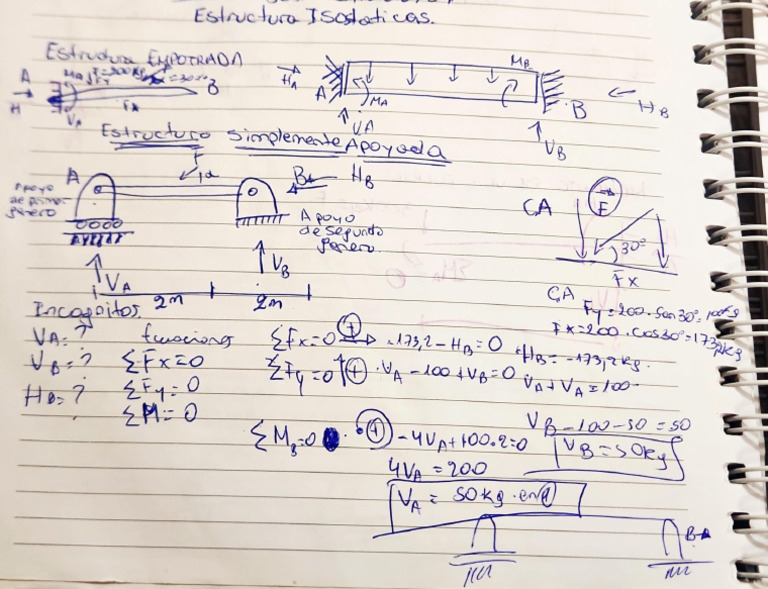 Estructura Isostaticas.
Estructura EMPOTRADA
A
MA
B
H
VA
FX
HA
A
MA
MB
B
HB
VA
VB
Estructura Simplemente Apoyada
F
A
Apoyo de primer género
B
HB
Apoyo de Segundo género
VA
VB
2m
2m
CA
F
30°
Fx
CA
Fy=200.sen30°=100kg
Fx=200.cos30°=173,2kg
Incognitas
VA=?
VB=?
HB=?
funciones
ΣFx=0
ΣFy=0
ΣM=0
ΣFx=0 + -173,2-HB=0 HB=-173,2kg.
ΣFy=0 ↑+ .VA-100+VB=0 VA+VA=100
VB-100-50=50
VB=50kg
ΣMB=0 . + -4VA+100.2=0
4VA=200
VA = 50kg
B